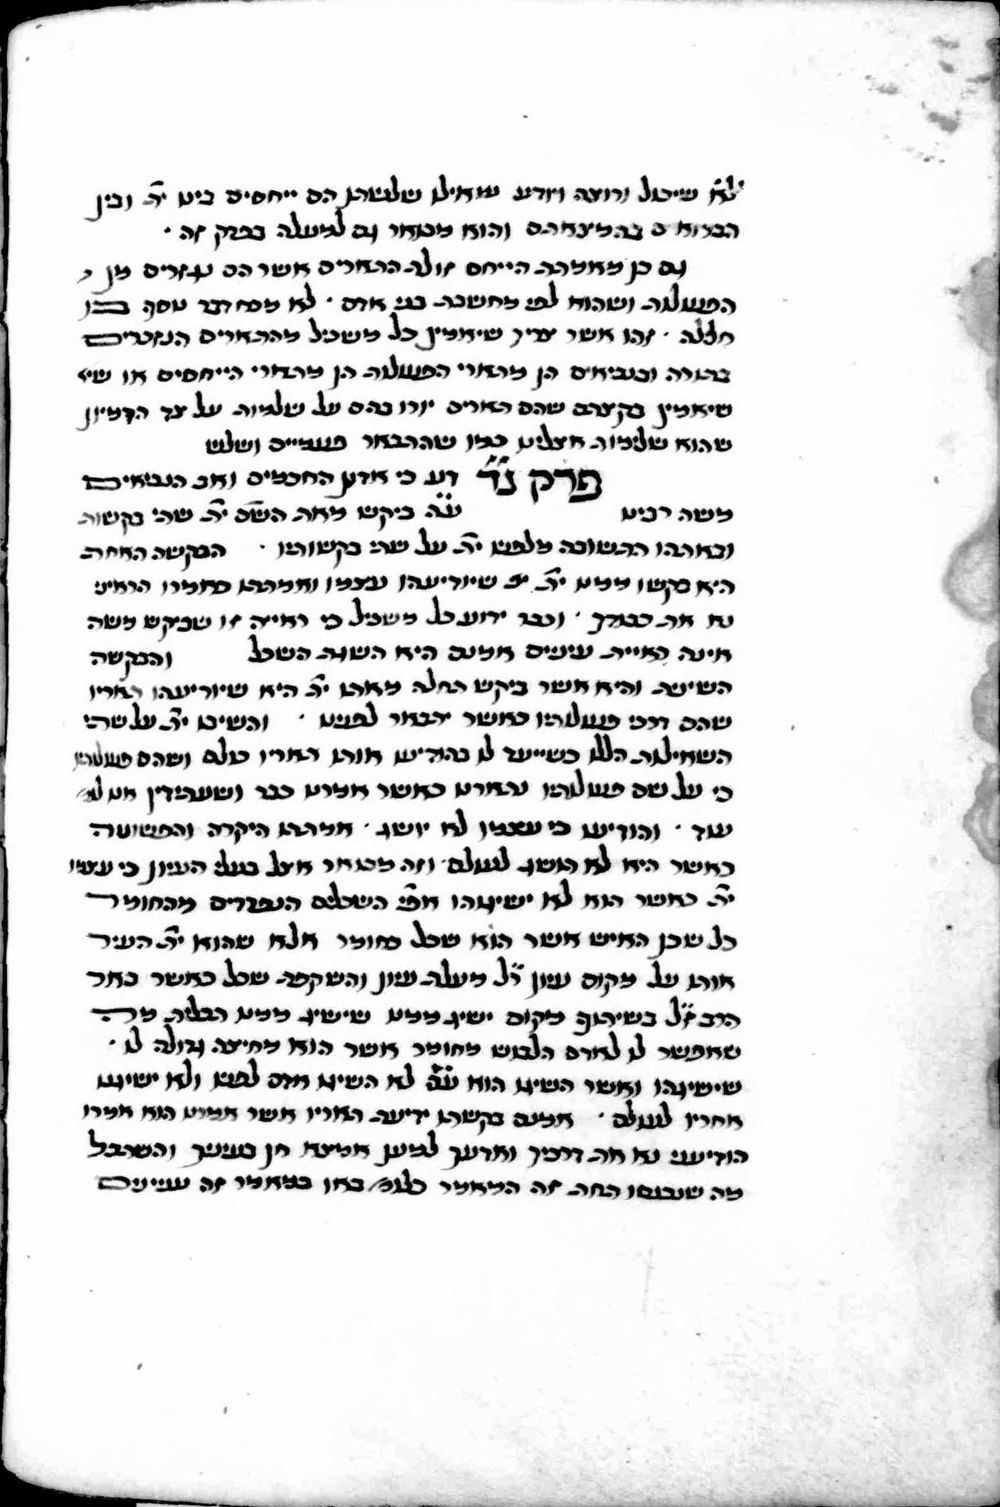 לא שיכול ורוצה ויודע שאילו שלשתן הם ייחסים בינו ית׳ ובין
הברואים בהמצאתם והוא מבואר גם למעלה בפרק זה ·
גם כן מאמרתי הייחס זולת התארים אשר הם נגזרים מן
הפעולות ושהוא לפי מחשבת בני אדם · לא מפני דבר עסק בו
חלילה · זהו אשר צריך שיאמין כל משכיל מהתארים הנזכרים
בתורה ובנביאים הן מתארי הפעולות הן מתארי הייחסים או
שיאמין בקצתם שהם תארים יורו בהם על שלמות על צד הדמיון
שהוא שלימות אצלינו כמו שהתבאר פעמיים ושלש
פרק נ״ד דע כי אדון החכמים ואב הנביאים
משה רבינו ע״ה ביקש מאת השם ית׳ שתי בקשות
ובאתהו התשובה מלפניו ית׳ על שתי בקשותיו · הבקשה האחת
היא בקשו ממנו ית׳ שיודיעהו עצמו ואמתתו כאמרו הראיני
נא את כבודך · וכבר ידוע כל משכיל כי ראייה זו שביקש משה
אינה ראיית עינים אמנם היא השגת השכל והבקשה
השינית והיא אשר ביקש תחלה מאתו ית׳ היא שיודיעהו תאריו
שהם דרכי פעולותיו כאשר יתבאר לפנינו · והשיבו ית׳ על שתי
השאילות הללו כשייעד לו בהודיעו אותו תאריו כולם ושהם פעולותיו
כי על שם פעולותיו נתארנו כאשר אמרנו כבר ושעתידין אנו לומר
עוד · והודיעו כי עצמו לא יושג · אמתתו היקרה והפשוטה
כאשר היא לא תושג לעולם · וזה מבואר אצל בעלי העיון כי עצמו
ית׳ כאשר הוא לא ישיגוהו אפי׳ השכלים הנפרדים מהחומר
כל שכן האיש אשר הוא שכל בחומר אלא שהוא ית׳ העיר
אותו על מקום עיון ר״ל מעלת עיון והשקפת שכל כאשר באר
הרב ז״ל בשיתוף מקום ישיג ממנו שישיג ממנו תכלית מה
שאפשר לו לאדם הלבוש מחומר אשר הוא מחיצה גדולה לו ·
שישיגהו ואשר השיגו הוא ע״ה לא השיגו אדם לפניו ולא ישיגנו
אחריו לעולם · אמנם בקשתו ידיעת תאריו אשר אמרנו הוא אמרו
הודיעני נא את דרכיך ואדעך למען אמצא חן בעיניך והסתכל
מה שנכנסו תחת זה המאמר כלומ׳ באו במאמר זה עניינים